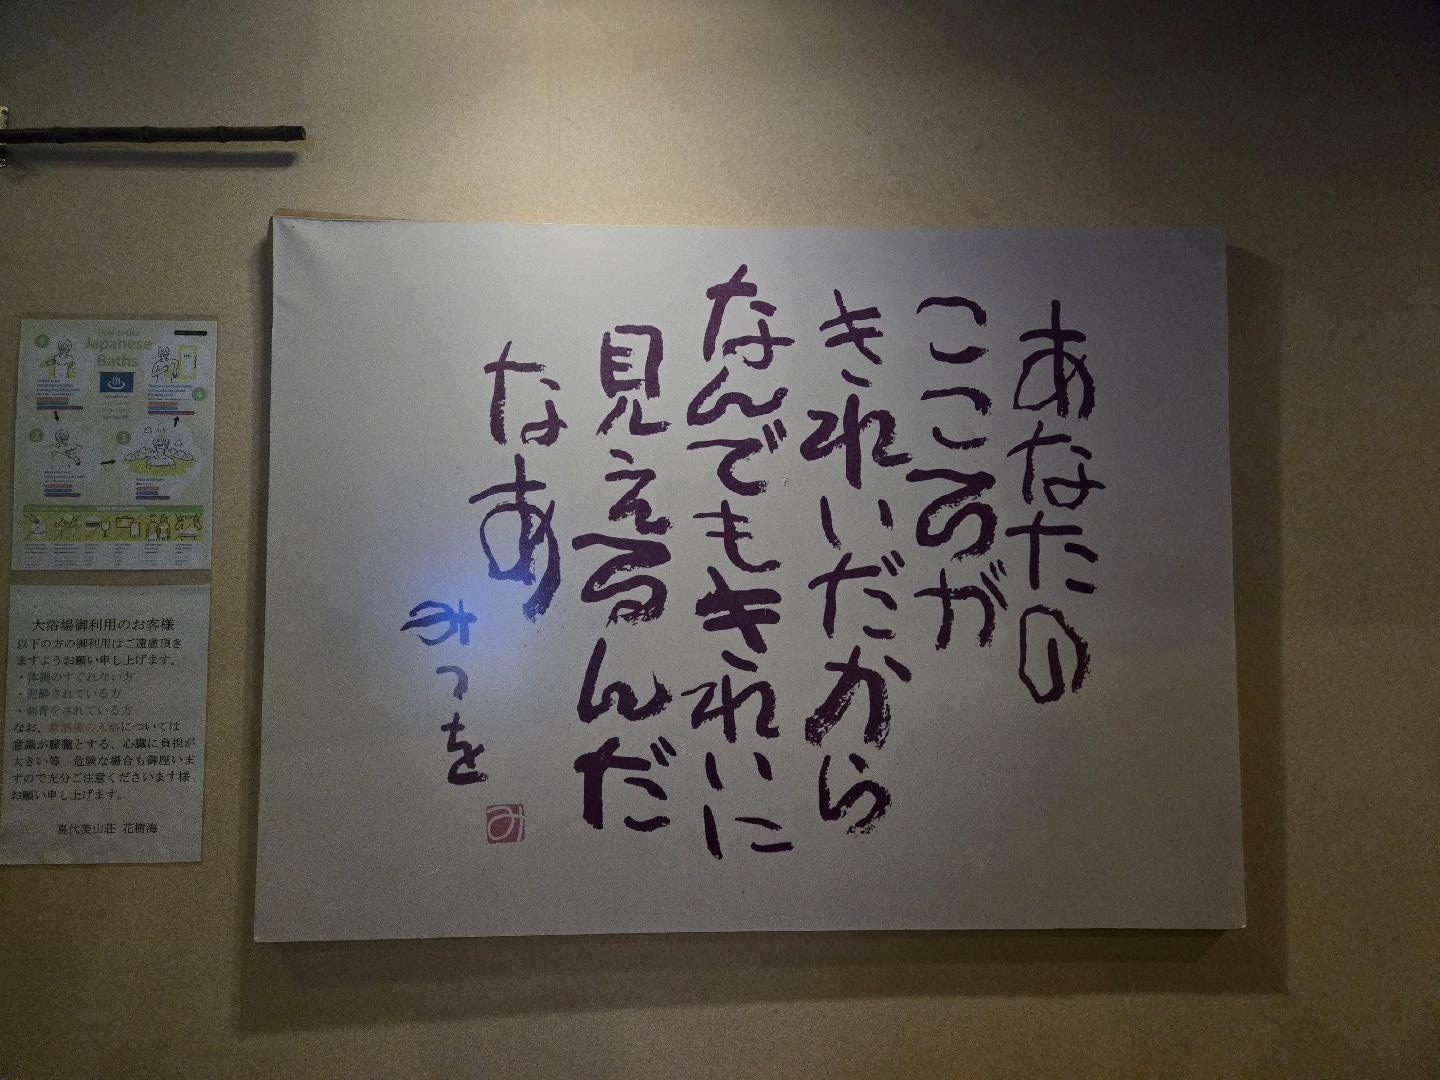 あなたの
こころが
きれいだから
なんでもきれいに
見えるんだ
なあ
みつを
み
Japanese
Baths
1
2
3
4
大浴場御利用のお客様
以下の方の御利用はご遠慮頂き
ますようお願い申し上げます。
・体調のすぐれない方
・泥酔されている方
・刺青をされている方
なお、飲酒後の入浴については
意識が朦朧とする、心臓に負担が
大きい等　危険な場合も御座いま
すので充分ご注意くださいます様
お願い申し上げます。
喜代美山荘 花樹海